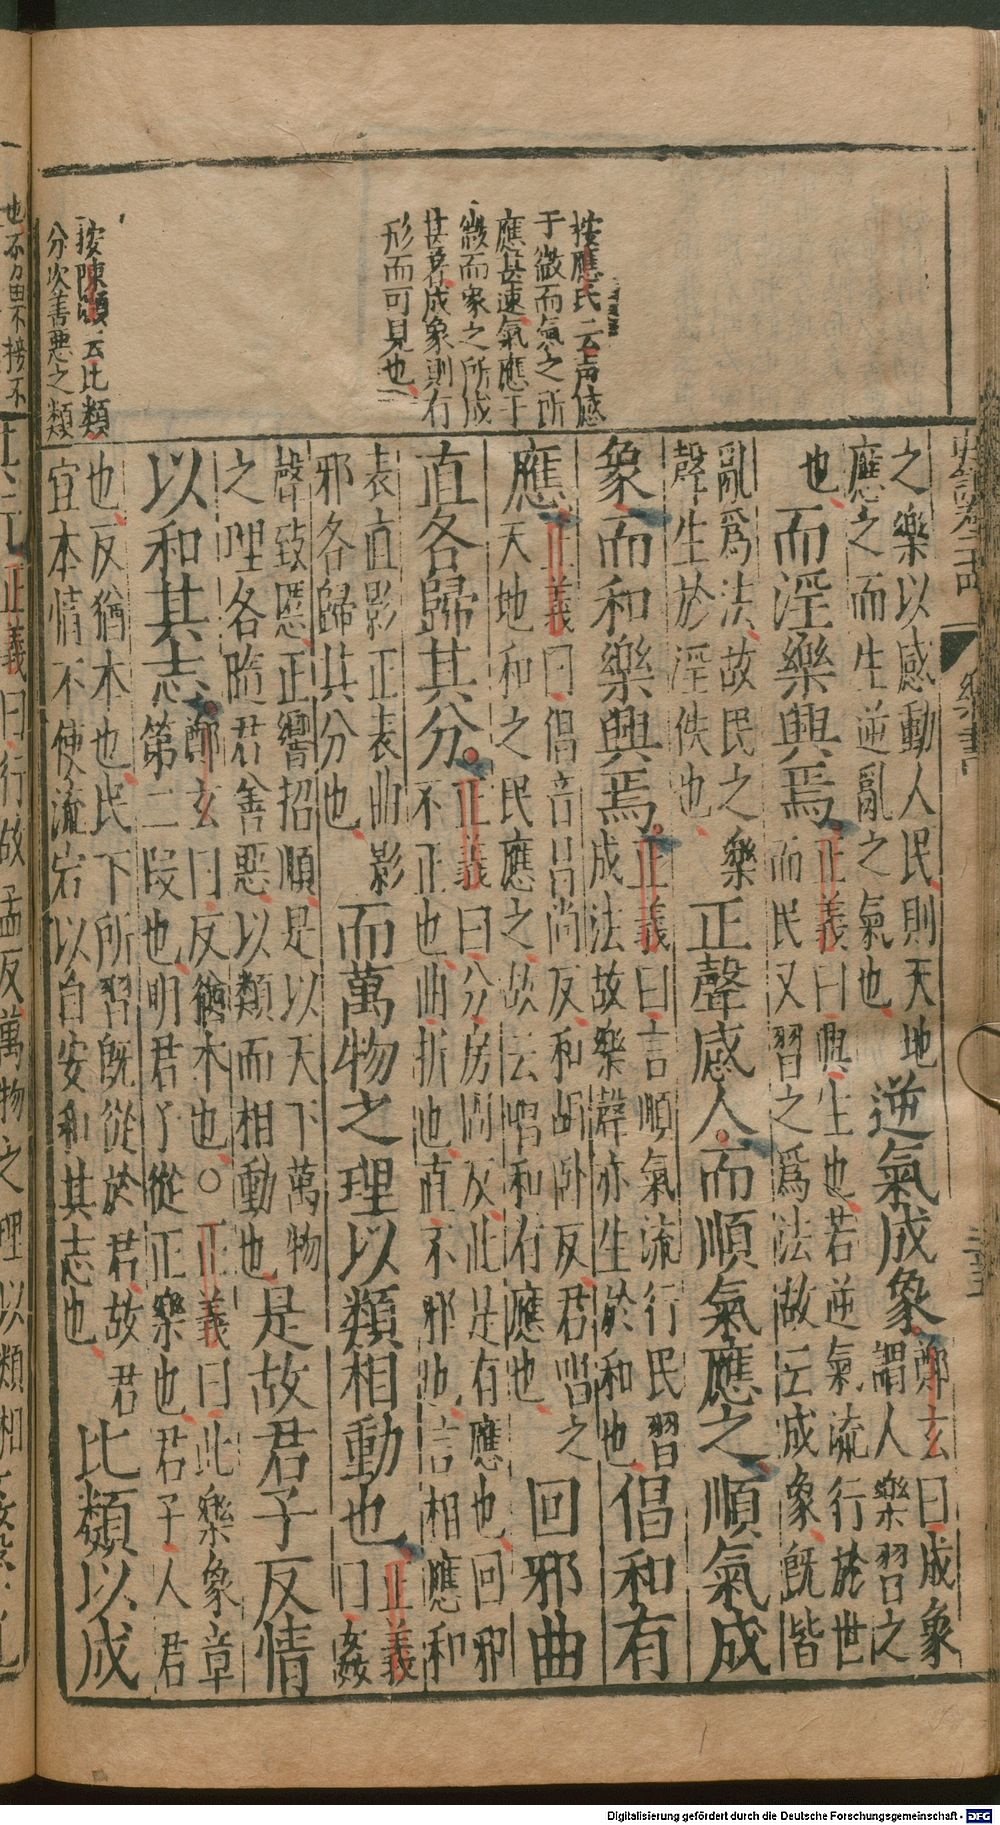 按應氏云声感
于微而氣之所
應甚速氣應于
微而象之所成
甚著成象則有
形而可見也
按陳顥云比類
分次善惡之類
史記卷二十四
樂書
之樂以感動人民則天地
應之而生逆亂之氣也
逆氣成象
鄭玄曰成象
謂人樂習之
也
而淫樂興焉
正義曰興生也若逆氣流行於世
而民又習之爲法故云成象旣皆
亂爲法故民之樂
聲生於淫佚也
正聲感人而順氣應之順氣成
象而和樂興焉
正義曰言順氣流行民習
成法故樂聲亦生於和也
倡和有
應
正義曰倡音昌尚反和胡卧反君唱之
天地和之民應之故云唱和有應也
回邪曲
直各歸其分
正義曰分房問反此是有應也回邪
不正也曲折也直不邪也言相應和
表直影正表曲影
邪各歸其分也
而萬物之理以類相動也
正義
曰姦
聲致慝正響招順是以天下萬物
之理各隨君善惡以類而相動也
是故君子反情
以和其志
鄭玄曰反猶本也○正義曰此樂象章
第二段也明君子從正樂也君子人君
也反猶本也民下所習旣從於君故君
宜本情不使流宕以自安和其志也
比類以成
Digitalisierung gefördert durch die Deutsche Forschungsgemeinschaft - DFG